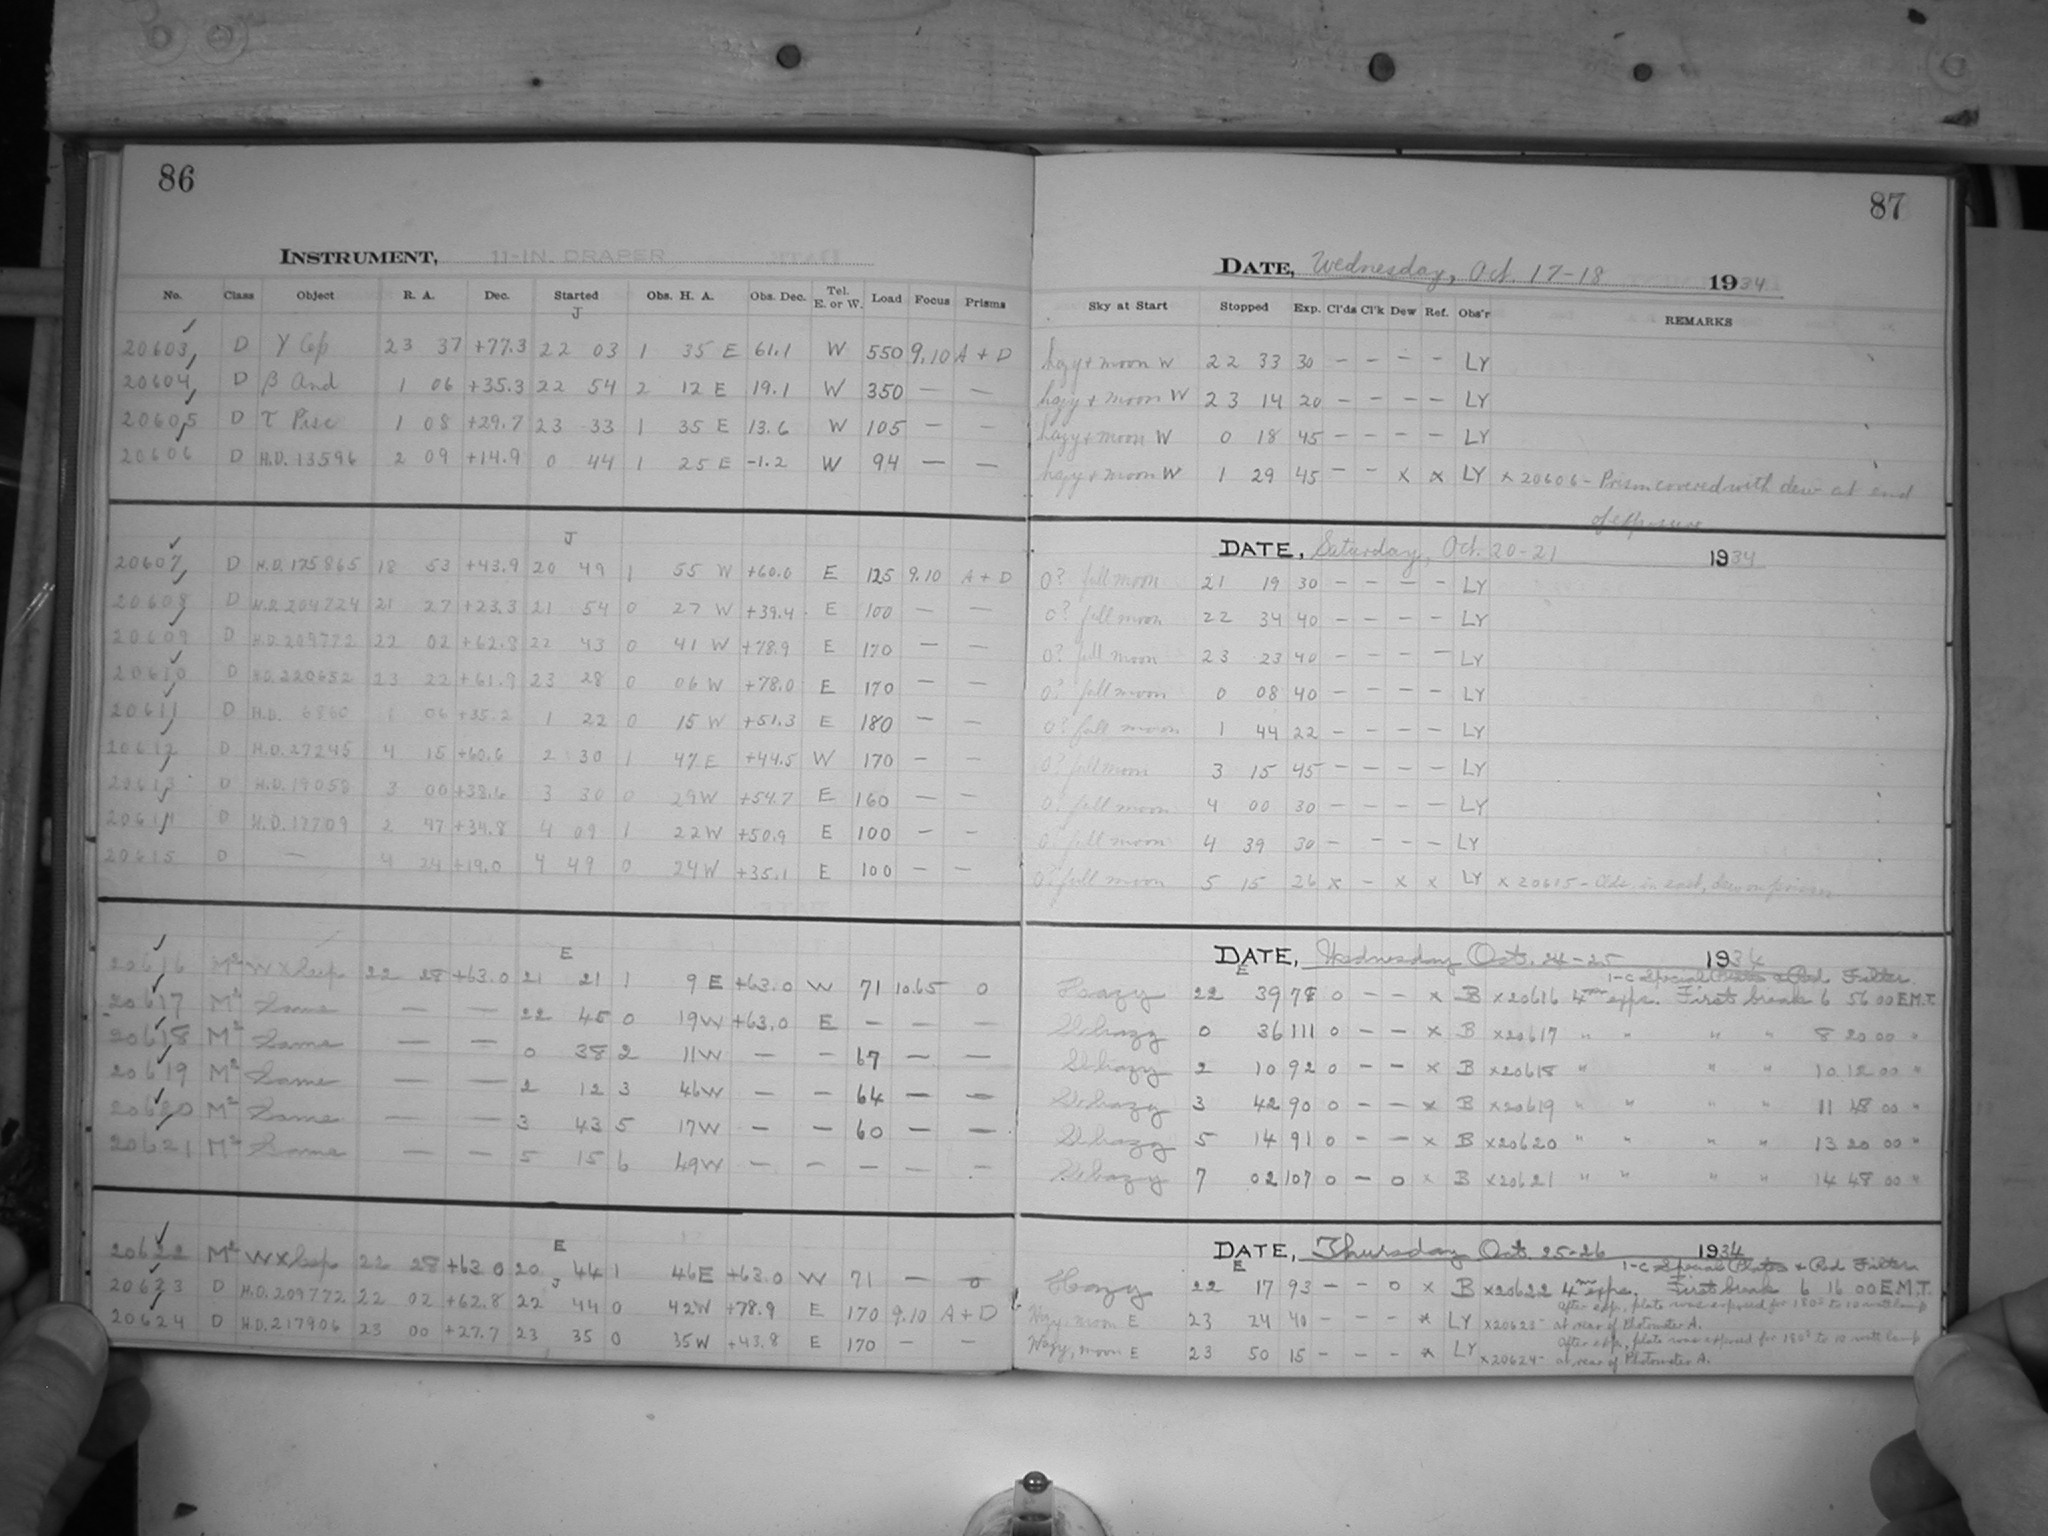 86
INSTRUMENT, 11-IN. DRAPER
No. Class Object R. A. Dec. Started Obs. H. A. Obs. Dec. Tel. E. or W. Load Focus Prisms
J
20603 D γ Cep 23 37 +77.3 22 03 1 35 E 61.1 W 550 9.10 A + D
20604 D β And 1 06 +35.3 22 54 2 12 E 19.1 W 350 — —
20605 D τ Pisc 1 08 +29.7 23 33 1 35 E 13.6 W 105 — —
20606 D H.D. 13596 2 09 +14.9 0 44 1 25 E -1.2 W 94 — —
J
20607 D H.D. 175865 18 53 +43.9 20 49 1 55 W +60.0 E 125 9.10 A + D
20608 D H.D. 204724 21 27 +23.3 21 54 0 27 W +39.4 E 100 — —
20609 D H.D. 209772 22 02 +62.8 22 43 0 41 W +78.9 E 170 — —
20610 D H.D. 220652 23 22 +61.9 23 28 0 06 W +78.0 E 170 — —
20611 D H.D. 6860 1 06 +35.2 1 22 0 15 W +51.3 E 180 — —
20612 D H.D. 27245 4 15 +60.6 2 30 1 47 E +44.5 W 170 — —
20613 D H.D. 19058 3 00 +38.6 3 30 0 29 W +54.7 E 160 — —
20614 D H.D. 17709 2 47 +34.8 4 09 1 22 W +50.9 E 100 — —
20615 D — 4 24 +19.0 4 49 0 24 W +35.1 E 100 — —
E
20616 M² WX Cep 22 28 +63.0 21 21 1 9 E +63.0 W 71 10.65 0
20617 M² Same — — 22 45 0 19 W +63.0 E — — —
20618 M² Same — — 0 38 2 11 W — — 67 — —
20619 M² Same — — 2 12 3 46 W — — 64 — —
20620 M² Same — — 3 43 5 17 W — — 60 — —
20621 M² Same — — 5 15 6 49 W — — — — —
E
20622 M² WX Cep 22 28 +63.0 20 44 1 46 E +63.0 W 71 — 0
J
20623 D H.D. 209772 22 02 +62.8 22 44 0 42 W +78.9 E 170 9.10 A + D
20624 D H.D. 217906 23 00 +27.7 23 35 0 35 W +43.8 E 170 — —
87
DATE, Wednesday, Oct. 17-18 1934
Sky at Start Stopped Exp. Cl'ds Cl'k Dew Ref. Obs'r REMARKS
hazy + moon W 22 33 30 — — — — LY
hazy + moon W 23 14 20 — — — — LY
hazy + moon W 0 18 45 — — — — LY
hazy + moon W 1 29 45 — — x x LY x 20606 - Prism covered with dew at end
of exposure
DATE, Saturday, Oct. 20-21 1934
0? full moon 21 19 30 — — — — LY
0? full moon 22 34 40 — — — — LY
0? full moon 23 23 40 — — — — LY
0? full moon 0 08 40 — — — — LY
0? full moon 1 44 22 — — — — LY
0? full moon 3 15 45 — — — — LY
0? full moon 4 00 30 — — — — LY
0? full moon 4 39 30 — — — — LY
0? full moon 5 15 26 x — x x LY x 20615 - Clds. in east, dew on prism
DATE, Wednesday Oct. 24-25 1934
E 1-C Special Plates & Red Filter.
Hazy 22 39 78 0 — — x B x20616 4 exps. First break 6 56 00 E.M.T.
Sl hazy 0 36 111 0 — — x B x20617 " " " " 8 20 00 "
Sl hazy 2 10 92 0 — — x B x20618 " " " 10 12 00 "
Sl hazy 3 42 90 0 — — x B x20619 " " " " 11 48 00 "
Sl hazy 5 14 91 0 — — x B x20620 " " " " 13 20 00 "
Sl hazy 7 02 107 0 — 0 x B x20621 " " " " 14 48 00 "
DATE, Thursday Oct. 25-26 1934
E 1-C Special Plates & Red Filter
Hazy 22 17 93 — — 0 x B x20622 4 exps. First break 6 16 00 E.M.T.
After exp., plate was exposed for 180s to 10 watt lamp
Hazy, moon E 23 24 40 — — — x LY x20623 - at rear of Photometer A.
After exp., plate was exposed for 180s to 10 watt lamp
Hazy, moon E 23 50 15 — — — x LY x20624 - at rear of Photometer A.